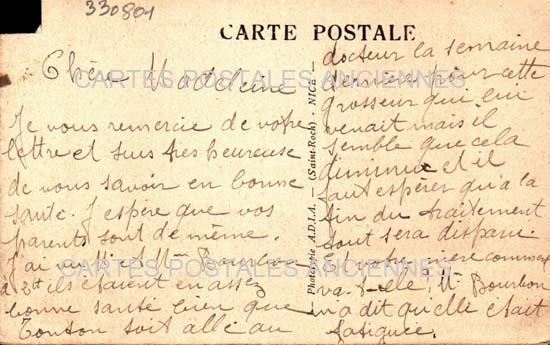 330801
CARTE POSTALE
Chère Madeleine
Je vous remercie de votre
lettre et suis très heureuse
de vous savoir en bonne
santé. J'espère que vos
parents sont de même.
J'ai Mme Bourbon
ils étaient en assez
bonne santé bien que
Tonton soit allé au
docteur la semaine
dernière pour cette
grosseur qui lui
venait mais il
semble que cela
diminue et il
faut espérer qu'à la
fin du traitement
tout sera disparu.
Et votre mère comment
va-t-elle? Mr Bourbon
m'a dit qu'elle était
fatiguée.
Phototypie A.D.I.A. — (Saint-Roch) - NICE —
CARTES POSTALES ANCIENNES
CARTES POSTALES ANCIENNES